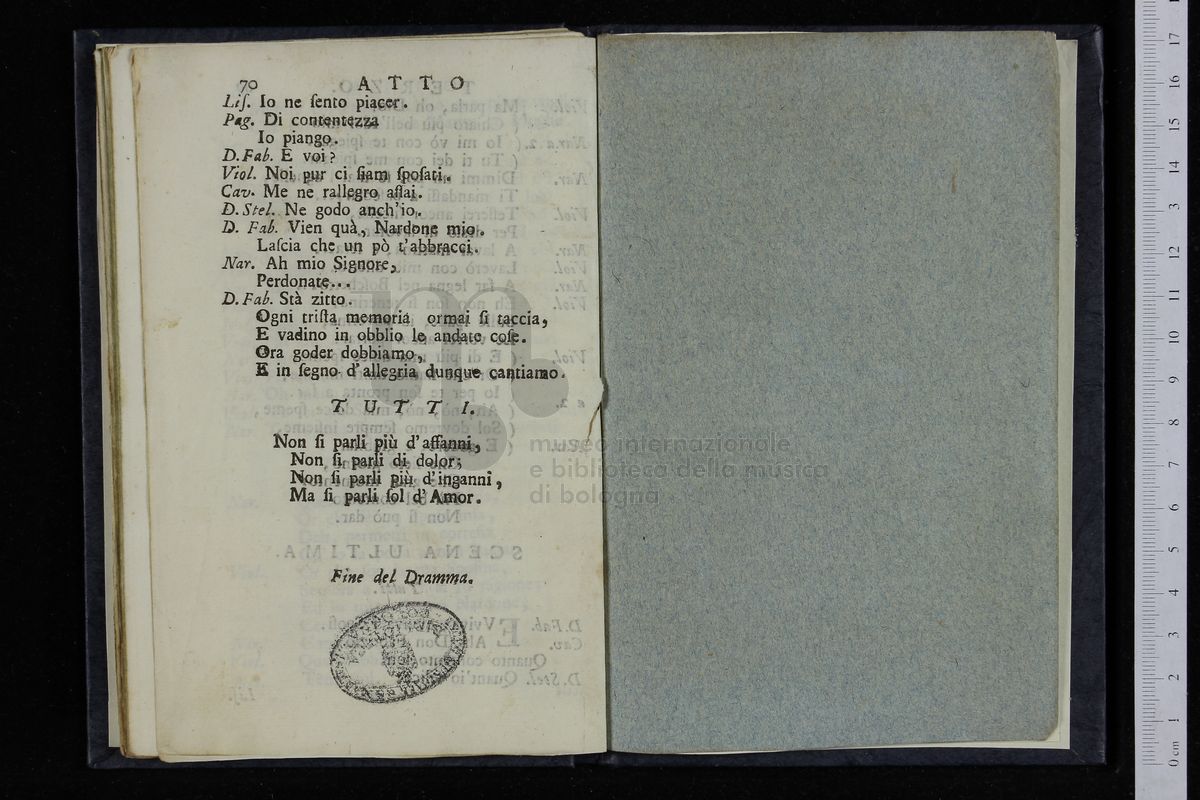 70 ATTO
Liſ. Io ne ſento piacer.
Pag. Di contentezza
Io piango.
D. Fab. E voi?
Viol. Noi pur ci ſiam ſpoſati.
Cav. Me ne rallegro aſſai.
D. Stel. Ne godo anch'io.
D. Fab. Vien quà, Nardone mio.
Laſcia che un pò t'abbracci.
Nar. Ah mio Signore,
Perdonate...
D. Fab. Stà zitto.
Ogni triſta memoria ormai ſi taccia,
E vadino in obblio le andate coſe.
Ora goder dobbiamo,
E in ſegno d'allegria dunque cantiamo.
TUTTI.
Non ſi parli più d'affanni,
Non ſi parli di dolor;
Non ſi parli più d'inganni,
Ma ſi parli ſol d'Amor.
Fine del Dramma.
museo internazionale
e biblioteca della musica
di bologna
0 cm 1 2 3 4 5 6 7 8 9 10 11 12 13 14 15 16 17